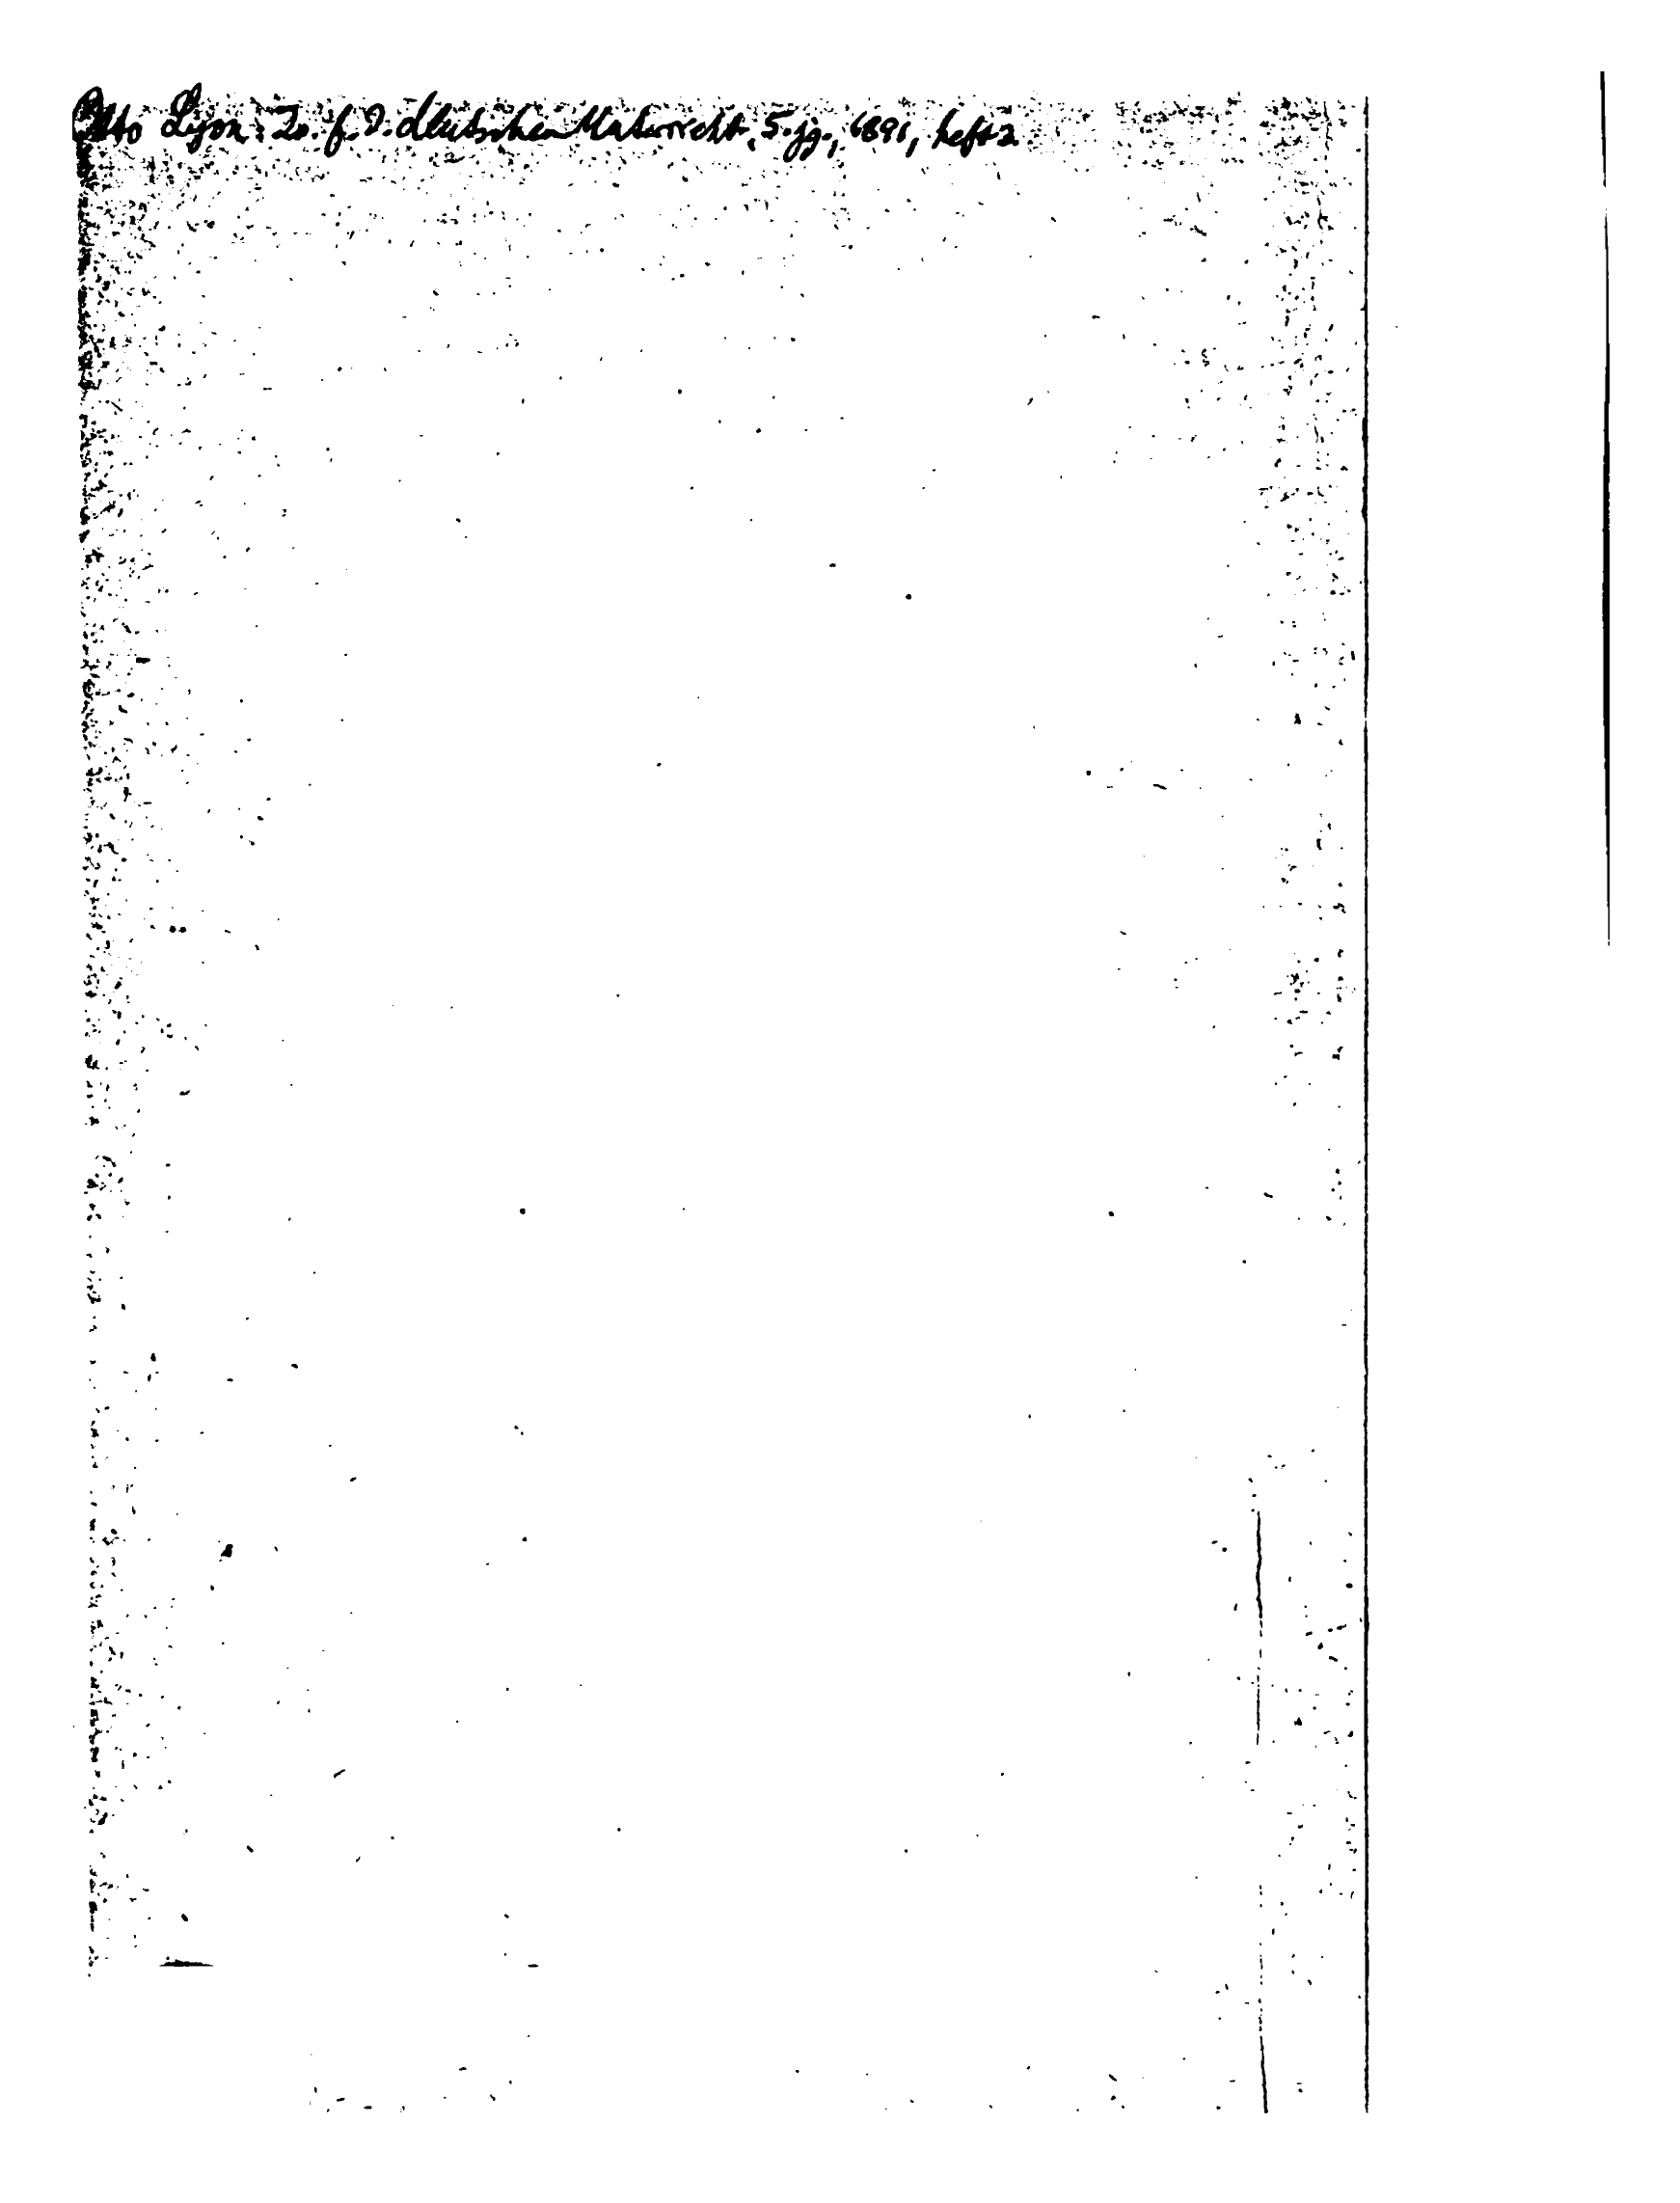 Otto Lyon: Zs. f. d. deutschen Unterricht, 5. jg., 1891, heft 2